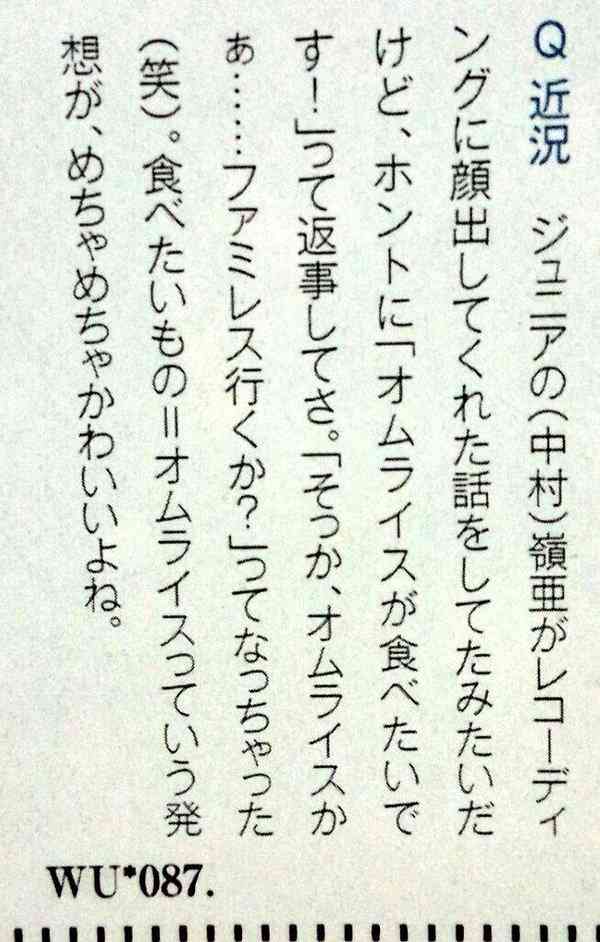 Q 近況　ジュニアの(中村)嶺亜がレコーディ
ングに顔出してくれた話をしてたみたいだ
けど、ホントに「オムライスが食べたいで
す！」って返事してさ。「そっか、オムライスか
ぁ……ファミレス行くか？」ってなっちゃった
(笑)。食べたいもの＝オムライスっていう発
想が、めちゃめちゃかわいいよね。
WU*087.